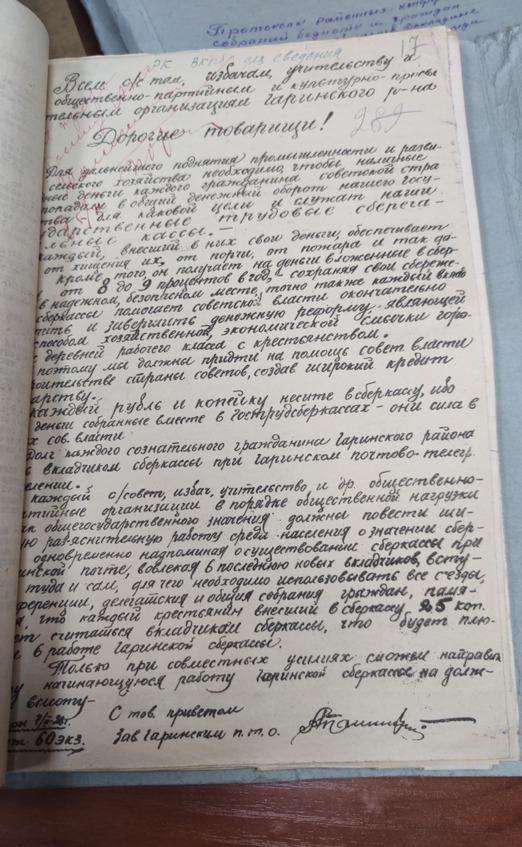 Протоколы районных конфе
собраний бедноты и граждан
РК ВКП/б/ для сведения
17
Всем о/с-там, избачам, учительству и
общественно-партийным и культурно-просве
тельным организациям гаринского р-на
282
Дорогие товарищи!
Для дальнейшего поднятия промышленности и разви-
сельского хозяйства необходимо, чтобы наличные
ные деньги каждого гражданина советской стра
попадали в общий денежный оборот нашего госу-
ства для каковой цели и служат наши
дарственные трудовые сберега-
льные кассы.-
каждый, внесший в них свои деньги, обеспечивает
от хищения их, от порчи, от пожара и так да-
Кроме того, он получает на деньги вложенные в сбер-
от 8 до 9 процентов в год, - сохраняя свои сбереже-
в надежном, безопасном месте, точно также каждый вклад
сберкассы помогает советской власти окончательно
пить и завершить денежную реформу, являющей
способом хозяйственной, экономической смычки горо-
с деревней рабочего класса с крестьянством.
поэтому мы должны придти на помощь совет. власти
роительстве страны советов, создав широкий кредит
дарству.
каждый рубль и копейку несите в сберкассу, ибо
деньги собранные вместе в Гострудсберкассах - они сила в
х сов. власти
долг каждого сознательного гражданина Гаринского района
ь вкладчиком сберкассы при Гаринском почтово-телегр.
делении.
каждый о/совет, избач, учительство и др. общественно-
ртийные организации в порядке общественной нагрузки
ак общегосударственного значения должны повести ши-
ую разъяснительную работу среди населения о значении сбер-
одновременно надпоминая о существовании сберкассы при
инской почте, вовлекая в последнюю новых вкладчиков, всту-
туда и сам, для чего необходимо использовать все съезды,
ференции, делегатския и общия собрания граждан, памя-
я, что каждый крестьянин внесший в сберкассу 25 коп.
ет считаться вкладчиком сберкассы, что будет плю-
м в работе Гаринской сберкассы.
Только при совместных усилиях сможем направи
у начинающуюся работу Гаринской сберкассы на долж-
у высоту-
С тов. приветом
Зав Гаринским п.т.о.
60 экз.